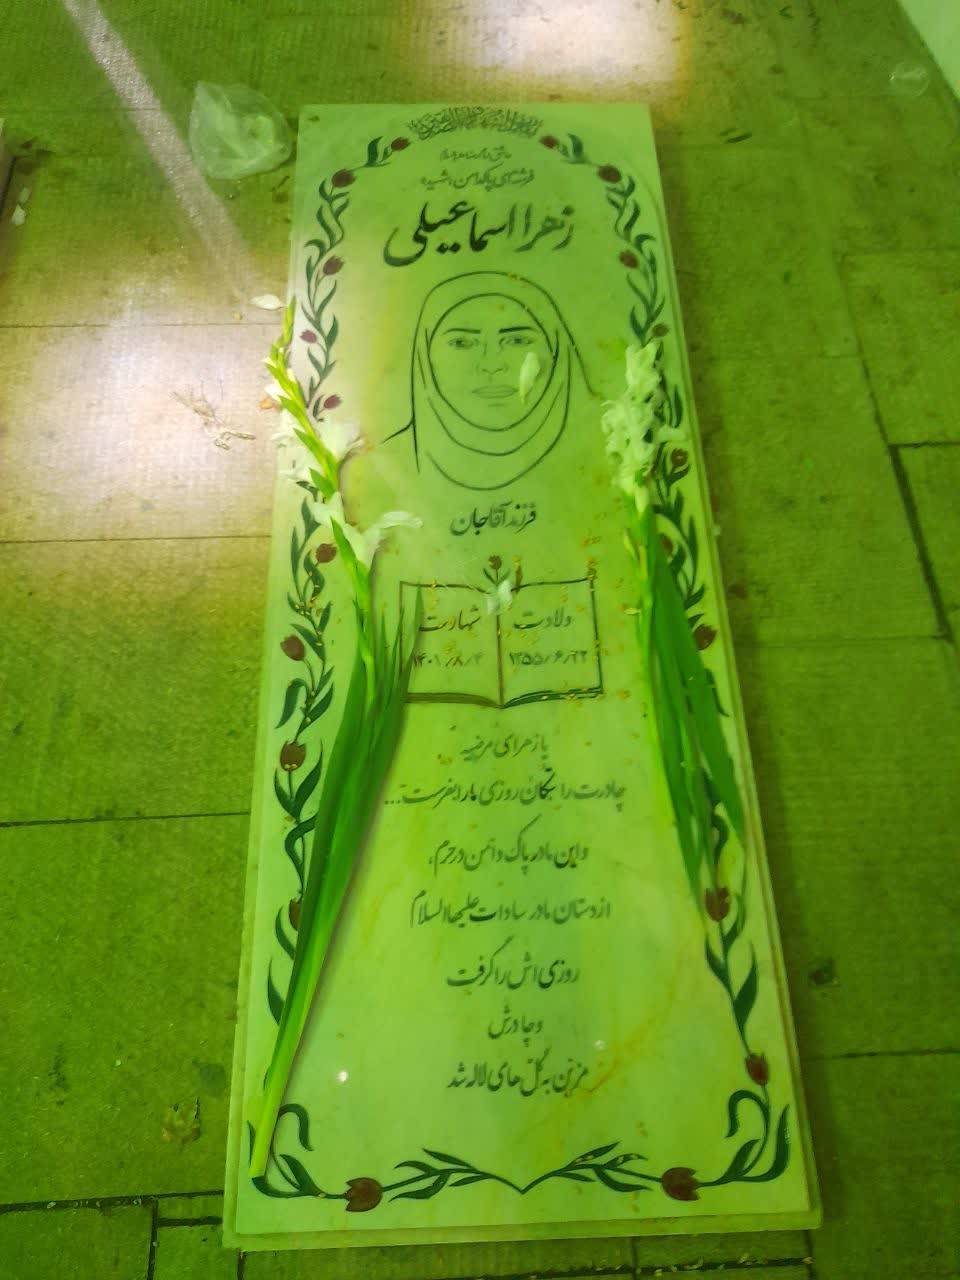 فرشته‌ای پاکدامن، شهیده
زهرا اسماعیلی
فرزند آقاجان
ولادت
۱۳۵۵/۶/۲۲
شهادت
۱۴۰۱/۸/۴
یا زهرای مرضیه
چادرت را بتکان روزی ما را بفرست...
و این مادر پاک دامن در حرم،
از دستان مادر سادات علیهاالسلام
روزی اش را گرفت
و چادرش
مزین به گل های لاله شد